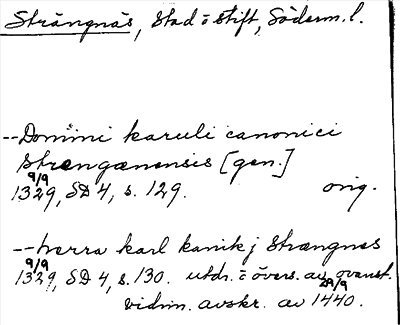 Strängnäs, stad o stift, Söderm. l.
--Domini karuli canonici
strengænensis [gen.]
9/9
1329, SD 4, s. 129. orig.
--herra karl kanik j strængnæs
9/9
1329, SD 4, s. 130. utdr. o övers. av ovanst.
vidim. avskr. av 29/9 1440.